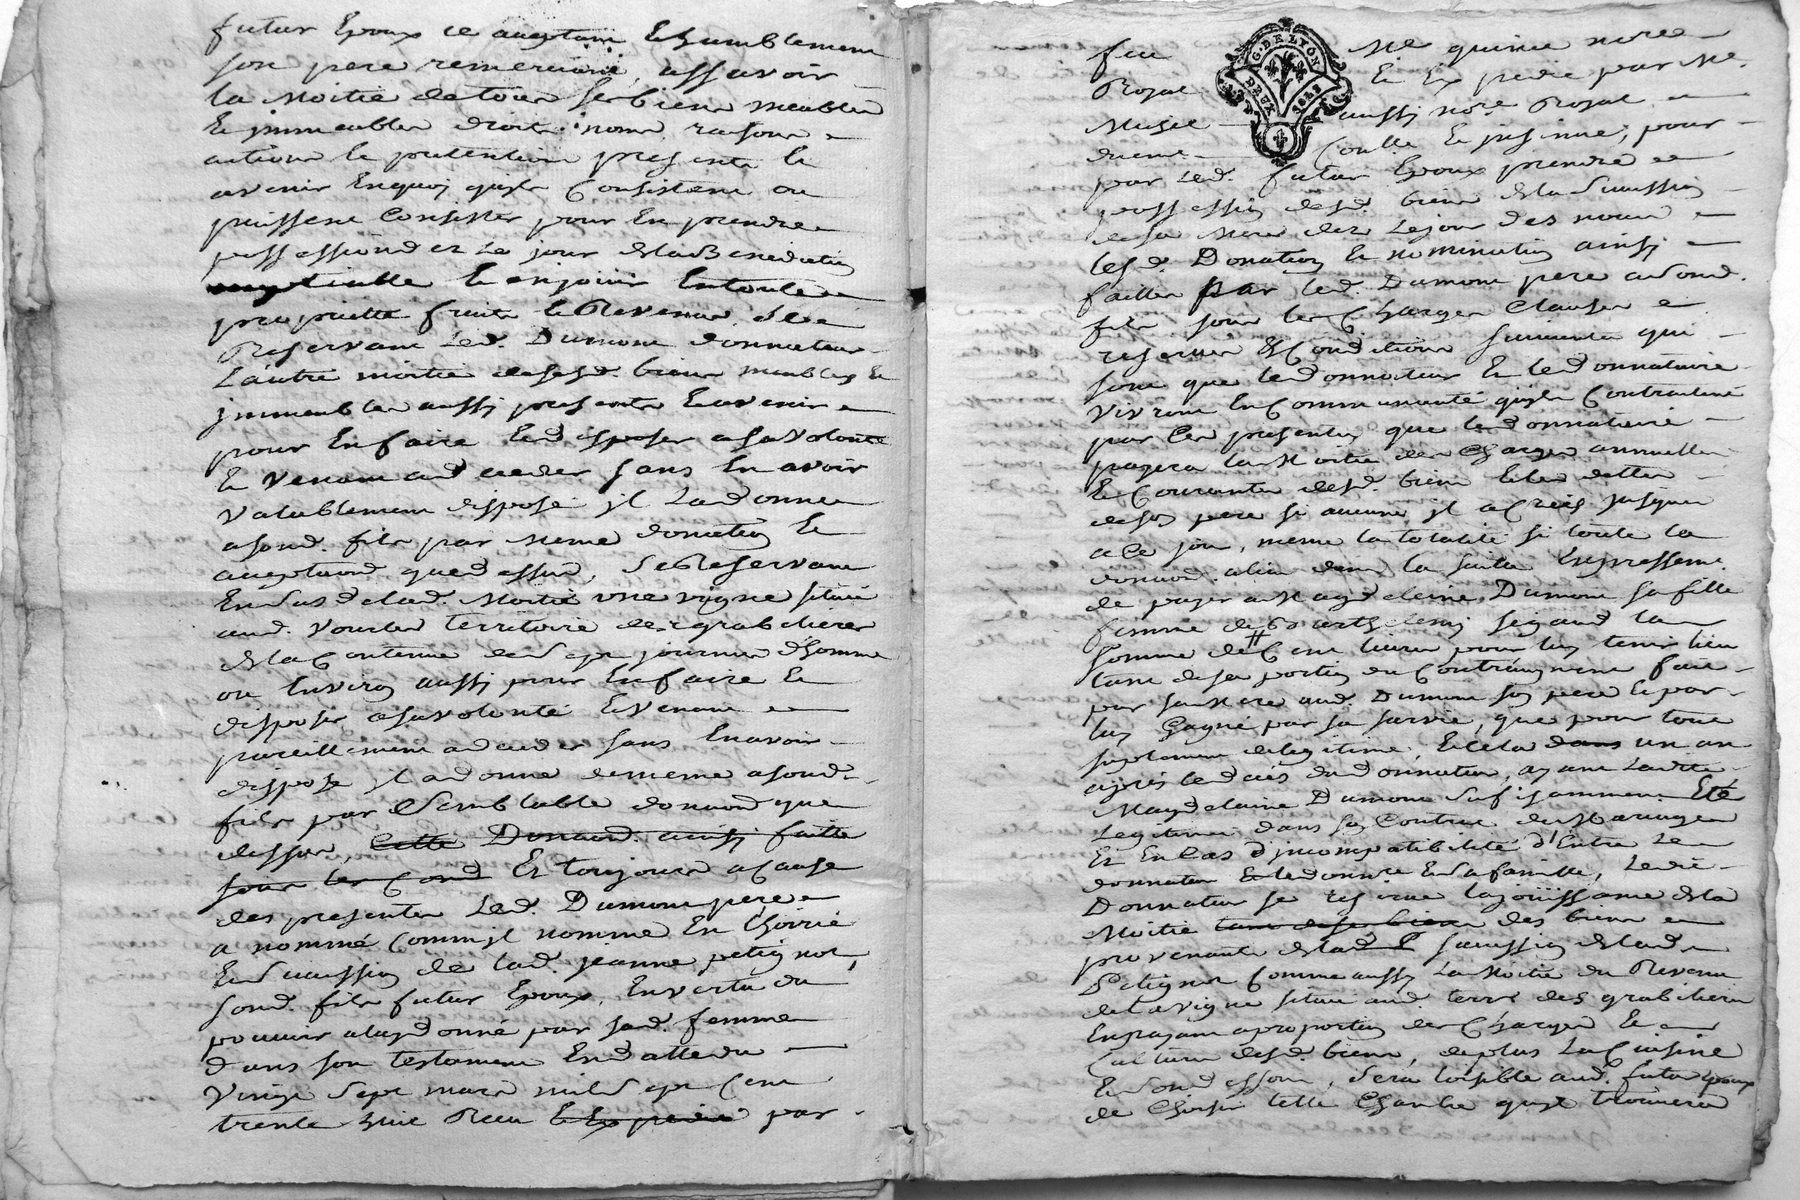 futur Epoux ce aceptant Ehumblement
son pere remerciant, assavoir
la Moitié de tous ses biens meubles
Et immeubles droits noms raisons
actions Et pretentions presents Et
avenir Enquoy quils Consistent ou
puissent Consister pour En prendre
possession dez Le jour dela Benediction
nuptialle Et enjouir Entoute
proprietté fruits Et Revenus, Se
Reservant Led. Dumont donnateur
L'autre moitié desesd. biens meubles Et
immeubles aussy presents Eavenir
pour En faire End isposer asavolonté
Et Venant adeceder sans En avoir
Valablement disposé jl Ladonne
asond. fils par meme donation Et
aceptaond que dessus, Se Reservant
En sus de lad. Moitié une vigne située
aud. Vourles territoire des grabelieres
dela Contenue de Sept journées d'homme
ou Environ aussy pour En faire Et
disposer asavolonté Et Venant
pareillement adeceder sans En avoir
disposé jl adonne dememe asond.
fils par Semblable donaond que
dessus, Cette Donaond. ainsy faitte
sous les Cond Et toujours acause
des presentes Led. Dumont pere
a nommé Comm jl nomme En Choirie
En Succession de lad. jeanne petignot,
sond. fils futur Epoux, En vertu du
pouvoir aluy donné par sad. femme
dans son testament En datte du
Vingt Sept mars mil Sept Cent
trente huit Reçu Et Expedié par
feu Me quinet nore
G. DE LYON
Royal Et Ex pedié par Me.
Musset aussy nore Royal
duement Conllé Et jnsinué, pour
par Led. futur Epoux prendre
possession desd. biens dela Succession
de sa Mere dez Lejour des noces
Lesd. Donation Et nomination ainsy
faittes par led. Dumont pere asond.
fils sous les Charges Clauses
reserves & Conditions suivantes qui
sont que le donnateur Et le donnataire
Vivront En Communauté quils Contractent
par Ces presentes que le donnataire
payera la Moitié des Charges annuelles
Et Courantes desd. biens Et les dettes
deson pere si aucunes jl a Creés jusques
a Ce jour, meme la totalité si toute la
donaond. alieu dans la suitte Expressement
de payer a Magdeleine Dumont sa fille
femme de Barthelemy Sigaud la
somme de Cent livres pour luy tenir lieu
tant desa portion du Contraugment fait
par sa Mere aud. Dumont son pere Et par
luy Gagné par sa survie, que pour tout
suplement delegitime Et Cela dans un an
après le deces du donnateur, ayant Ladite
Magdelaine Dumont sufisamment Eté
Legitimée dans son Contrat de Mariage
Et En Cas d'jncompatibilité d'Entre Le
donnateur Et le donnre En sa famille, Ledit
Donnateur se reserve lajoüissance dela
Moitié tant de ses biens des biens
provenants delad P sucession delad
Petignot Comme aussy La Moitié du Revenu
de la vigne située aud terre. des grabelieres
Enpayant aproportion des Charges Et
Culture desd. biens, deplus La Cuisine
En sond. assous, Sera loisible aud. futur Epoux
de Choisir telle Chambre quil trouvera